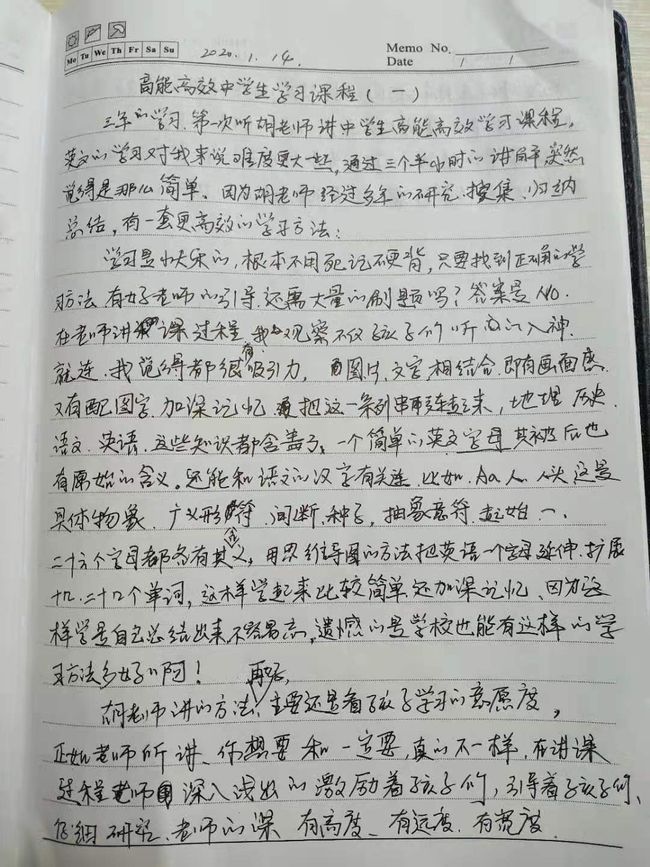 Mo Tu We Th Fr Sa Su
2020.1.14
Memo No.
Date / /
高能高效中学生学习课程(一)
三年的学习,第一次听胡老师讲中学生高能高效学习课程,
英文的学习对我来说难度更大一些,通过三个半小时的讲解突然
觉得是那么简单、因为胡老师经过多年的研究、搜集、归纳
总结,有一套更高效的学习方法:
学习是快乐的,根本不用死记硬背,只要找到正确的学
习方法,有好老师的引导,还需大量的刷题吗?答案是NO.
在老师讲课过程,我观察不仅孩子们听的入神
就连我觉得都很有吸引力,图片,文字相结合,即有画面感
又有配图字,加深记忆,把这一条列串联起来,地理 历史
语文、英语、这些知识都含盖了,一个简单的英文字母其被后也
有原始的含义。还能和语文的汉字有关连,比如、Aa人、人头这是
具体物象、广义形符、间断、种子,抽象意符,起始、一、
二十六个字母都各有其含义,用思维导图的方法把英语一个字母延伸、扩展
十几、二十几个单词,这样学起来比较简单,还加深记忆、因为这
样学是自己总结出来,不容易忘,遗憾的是学校也能有这样的学
习方法多好啊!
胡老师讲的方法再好,主要还是看孩子学习的意愿度,
正如老师所讲、你想要和一定要,真的不一样,在讲课
过程老师深入浅出的激励着孩子们,引导着孩子们、
仔细研究、老师的课 有高度、有远度、有宽度